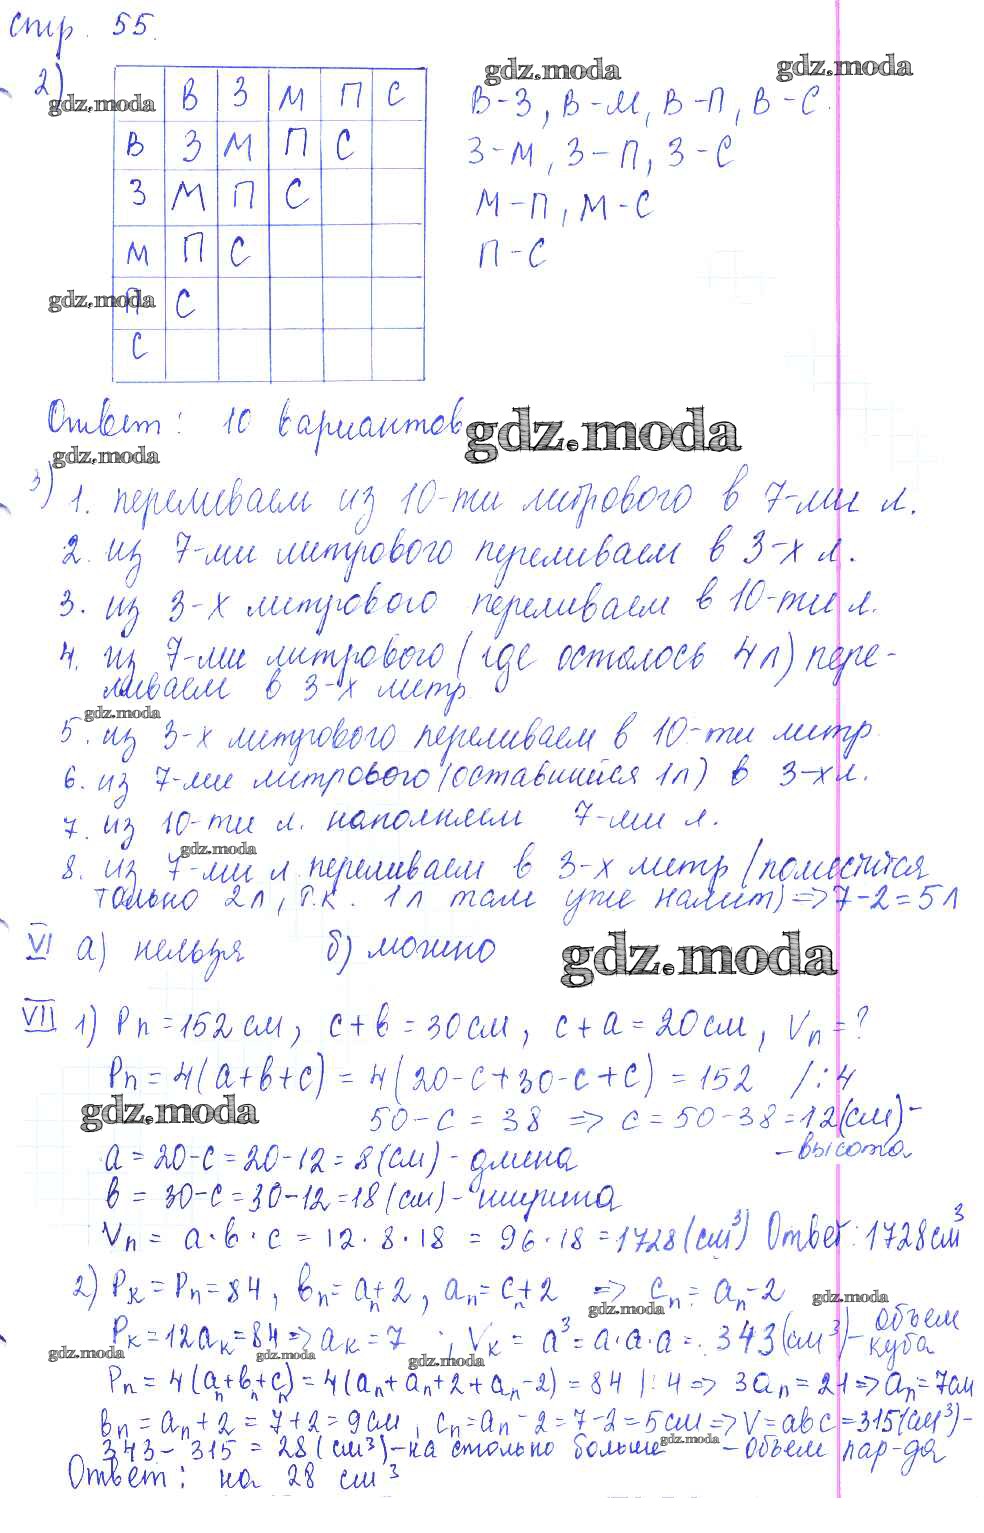 стр. 55.
2)
В З М П С
В З М П С
З М П С
М П С
П С
С
В-З, В-М, В-П, В-С.
З-М, З-П, З-С
М-П, М-С
П-С
gdz.moda
gdz.moda
gdz.moda
gdz.moda
Ответ: 10 вариантов
gdz.moda
gdz.moda
3) 1. переливаем из 10-ти литрового в 7-ми л.
2. из 7-ми литрового переливаем в 3-х л.
3. из 3-х литрового переливаем в 10-ти л.
4. из 7-ми литрового (где осталось 4л) пере-
ливаем в 3-х литр
gdz.moda
5. из 3-х литрового переливаем в 10-ти литр
6. из 7-ми литрового (оставшийся 1л) в 3-х л.
7. из 10-ти л. наполняем 7-ми л.
gdz.moda
8. из 7-ми л переливаем в 3-х литр (поместится
только 2л, т.к. 1л там уже налит) => 7-2=5л
VI а) нельзя б) можно
gdz.moda
VII 1) Pп = 152 см, c+b = 30 см, c+a = 20 см, Vп = ?
Pп = 4(a+b+c) = 4(20-c+30-c+c) = 152 /:4
gdz.moda
50-c = 38 => c = 50-38 = 12(см)-
- высота
a = 20-c = 20-12 = 8(см) - длина
b = 30-c = 30-12 = 18(см) - ширина
Vп = a·b·c = 12·8·18 = 96·18 = 1728(см³) Ответ: 1728см³
2) Pк = Pп = 84, bп = aп+2, aп = cп+2 => cп = aп-2
gdz.moda
gdz.moda
Pк = 12aк = 84 => aк = 7; Vк = a³ = a·a·a = 343(см³) - объем
куба
gdz.moda
gdz.moda
gdz.moda
Pп = 4(aп+bп+cп) = 4(aп+aп+2+aп-2) = 84 /:4 => 3aп = 21 => aп = 7см
bп = aп+2 = 7+2 = 9см, cп = aп-2 = 7-2 = 5см => V = abc = 315(см³)-
343-315 = 28(см³) - на столько больше - объем пар-да
gdz.moda
Ответ: на 28 см³